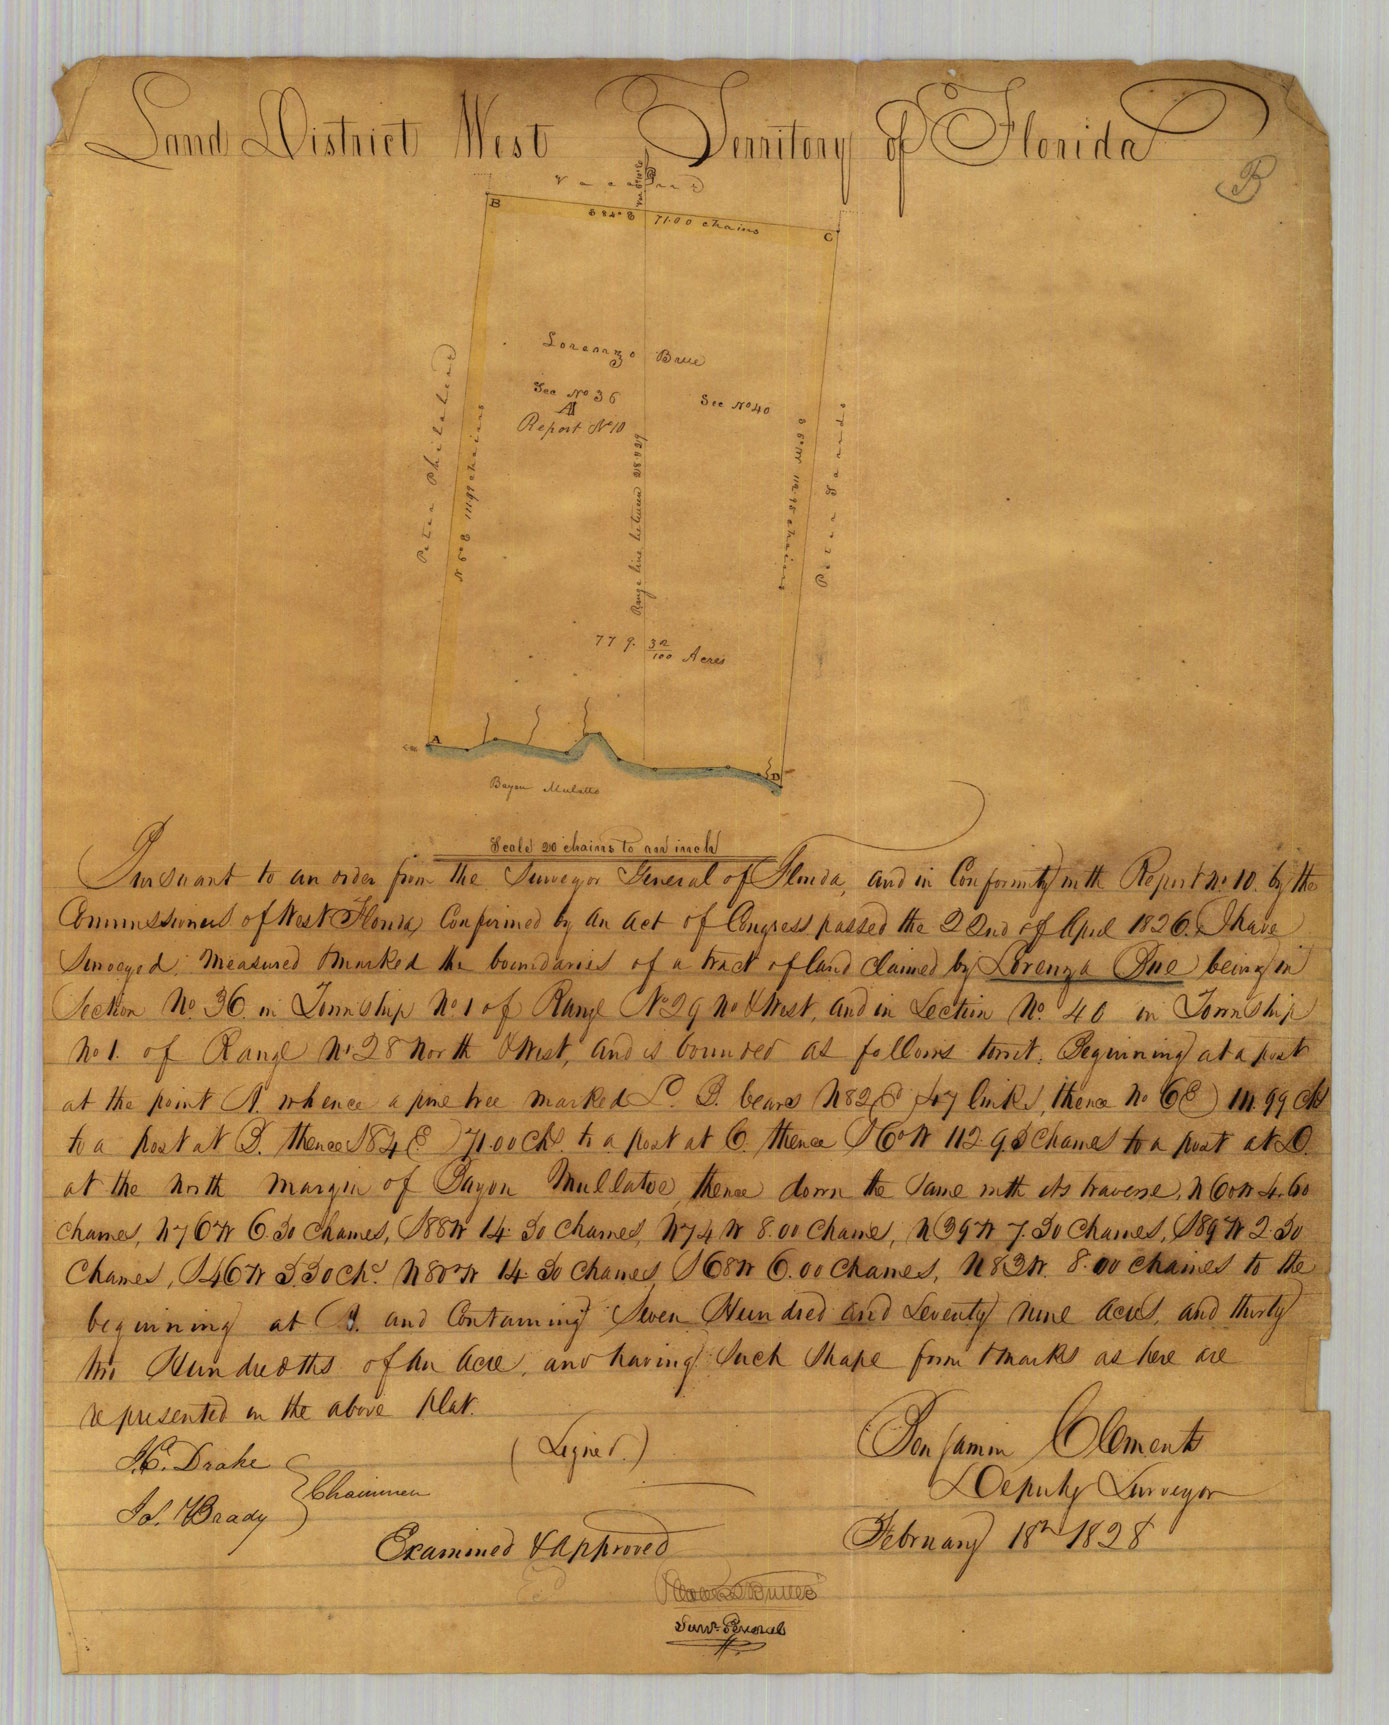 Land District West Territory of Florida
B
Vacant
B
S 84° E 71.00 chains
C
Lorenzo Brue
Sec No 36
Sec No 40
Report No 10
Peter Philibert
N 6° E 111.99 chains
Range line between 28 & 29
S 6° W 112.93 chains
Peter
779. 32/100 Acres
A
D
Bayou Mulatto
Scale 20 chains to an inch
Pursuant to an order from the Surveyor General of Florida, and in Conformity with Report No. 10. by the
Commissioners of West Florida, Confirmed by an act of Congress passed the 22nd of April 1826. I have
Surveyed, measured & marked the boundaries of a tract of land claimed by Lorenza Brue being in
Section No 36 in Township No 1 of Range No 29 No & West, and in Section No. 40 in Township
No 1. of Range No 28 North & West, and is bounded as follows towit; Beginning at a post
at the point A. whence a pine tree marked L. B. bears N82E 47 links, thence No 6E 111.99 chs
to a post at B. thence S84E 71.00 Chs to a post at C. thence S6°W 112.93 chames to a post at D.
at the north margin of Bayou Mullatoe, thence down the same with its traverse, N60W 4.60
chames, N76W 6.30 chames, S88W 14.30 chames, N74W 8.00 chames, N39W 7.30 chames, S89W 2.30
Chames, S46W 3.30 Chs. N80W 14.30 chames, S68W 6.00 chames, N83W. 8.00 chaines to the
beginning at A. and containing Seven Hundred and Seventy nine acres, and thirty
two Hundredths of an acre, and having such shape form & marks as here are
represented in the above plat.
J.C. Drake
Js. Brady
Chainmen
(Signed.)
Benjamin Clements
Deputy Surveyor
February 18th 1828
Examined & Approved
Surv. General